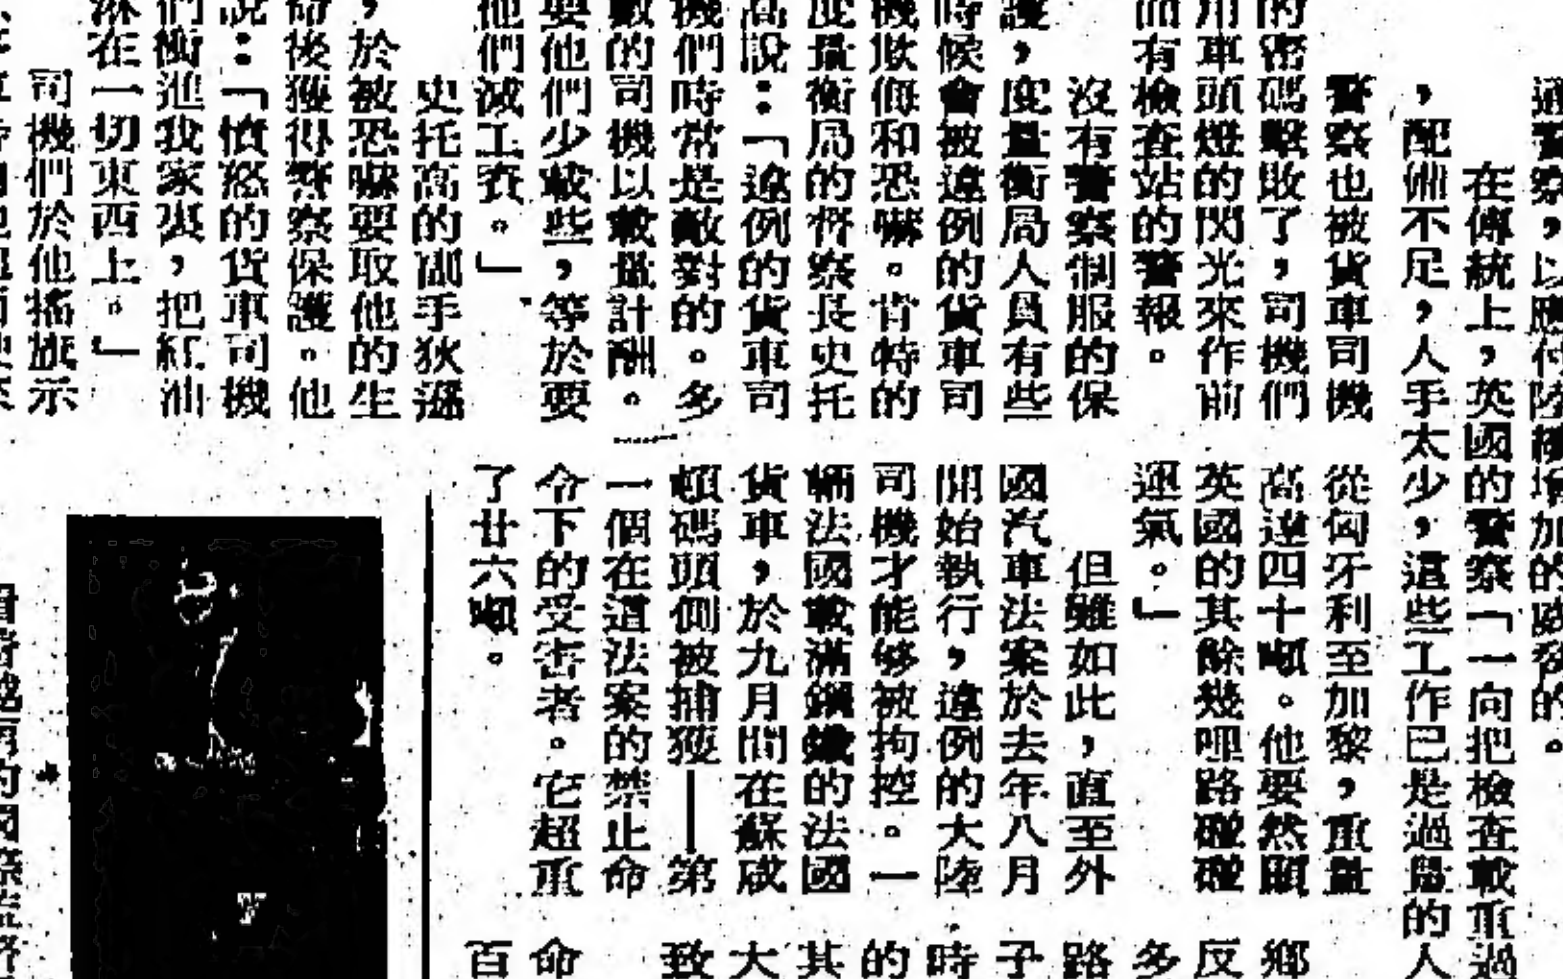 通警察，以應付陸續增加的
在傳統上，英國的警察「一向把檢查載重過
，配備不足，人手太少，這些工作已是過量的人
警察也被貨車司機
的密碼擊敗了，司機們
用車頭燈的閃光來作前
而有檢查站的警報。
沒有警察制服的保
護，度量衡局人員有些
時候會被違例的貨車司
機欺侮和恐嚇。肯特的
度量衡局的督察長史托
高說：「違例的貨車司
機們時常是敵對的。多
數的司機以載量計酬。
要他們少載些，等於要
他們減工資。」
史托高的副手狄遜
，於被恐嚇要取他的生
命後獲得警察保護。他
說：「憤怒的貨車司機
們衝進我家裏，把紅油
淋在一切東西上。」
司機們於他搖旗示
從匈牙利至加黎，重量
高達四十噸。他要然願
英國的其餘幾哩路碰碰
運氣。」
但雖如此，直至外
國汽車法案於去年八月
開始執行，違例的大陸
司機才能够被拘控。一
輛法國載滿鋼鐵的法國
貨車，於九月間在蘇咸
頓碼頭側被捕獲——第
一個在這法案的禁止命
令下的受害者。它超重
了廿六噸。
鄉
反
多
路
子
時
的
其
大
致
命
百